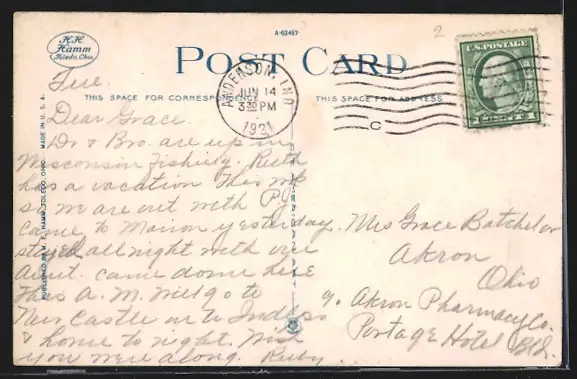 H.H. Hamm
Toledo, Ohio
A-62457
2
POST CARD
THIS SPACE FOR CORRESPONDENCE
THIS SPACE FOR ADDRESS
PUBLISHED BY H. H. HAMM, TOLEDO, OHIO. MADE IN U.S.A.
ANDERSON, IND
JUN 14
3 30 PM
1921
C
U.S. POSTAGE
Tue.
Dear Grace.
Dr & Bro. are up in
Wisconsin fishing. Ruth
has a vacation this wk
so we are out with P.J.
came to Marion yesterday.
stayed all night with our
Aunt. came down here
this A.M. will go to
New Castle on to Indpls
& home to night. Wish
you were along. Ruby
Mrs Grace Batchelor
Akron
Ohio
% Akron Pharmacy Co.
Portage Hotel Bld.